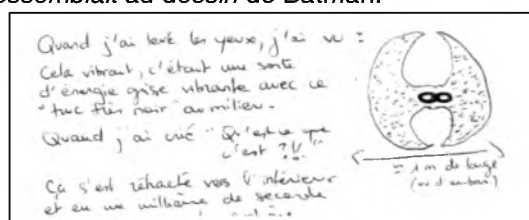 ressemblait au dessin de Batman.
Quand j'ai levé les yeux, j'ai vu :
Cela vibrait, c'était une sorte
d'énergie grise vibrante avec ce
"truc très noir" au milieu.
Quand j'ai crié "Qu'est-ce que
c'est ?!!"
Ça s'est rétracté vers l'intérieur
et en une millième de seconde
≈ 1 m de large
(vu d'en bas)